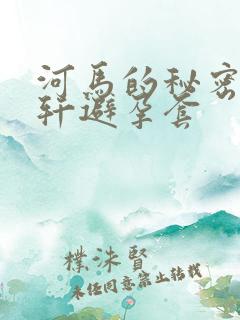 河馬的秘密
轩避孕套
樸洙賢
未经同意禁止转载